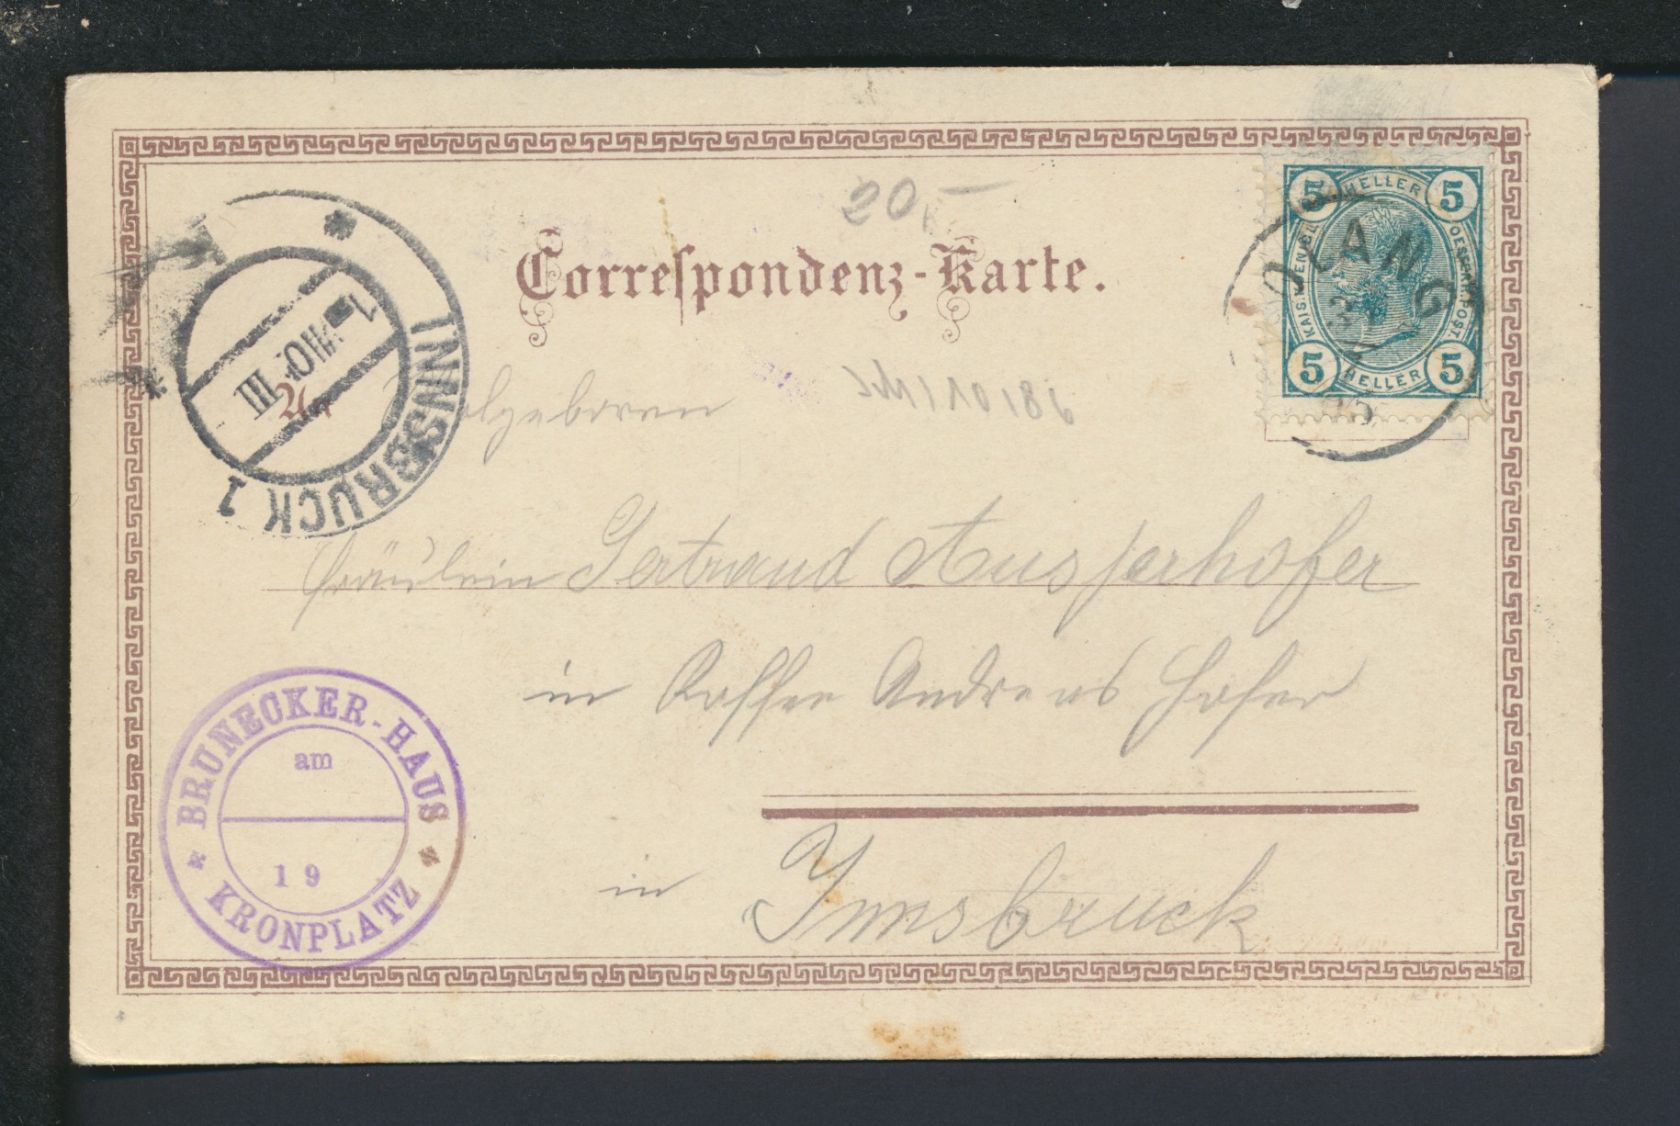 20,-
Correspondenz-Karte.
5 HELLER 5
KAIS.
OESTERR. POST
5 HELLER 5
OLANG
INNSBRUCK 1
III
An
Fräulein Gertraud Ausserhofer
in Kaffee Andreas Hofer
in Innsbruck
* BRUNECKER-HAUS *
am
19
KRONPLATZ